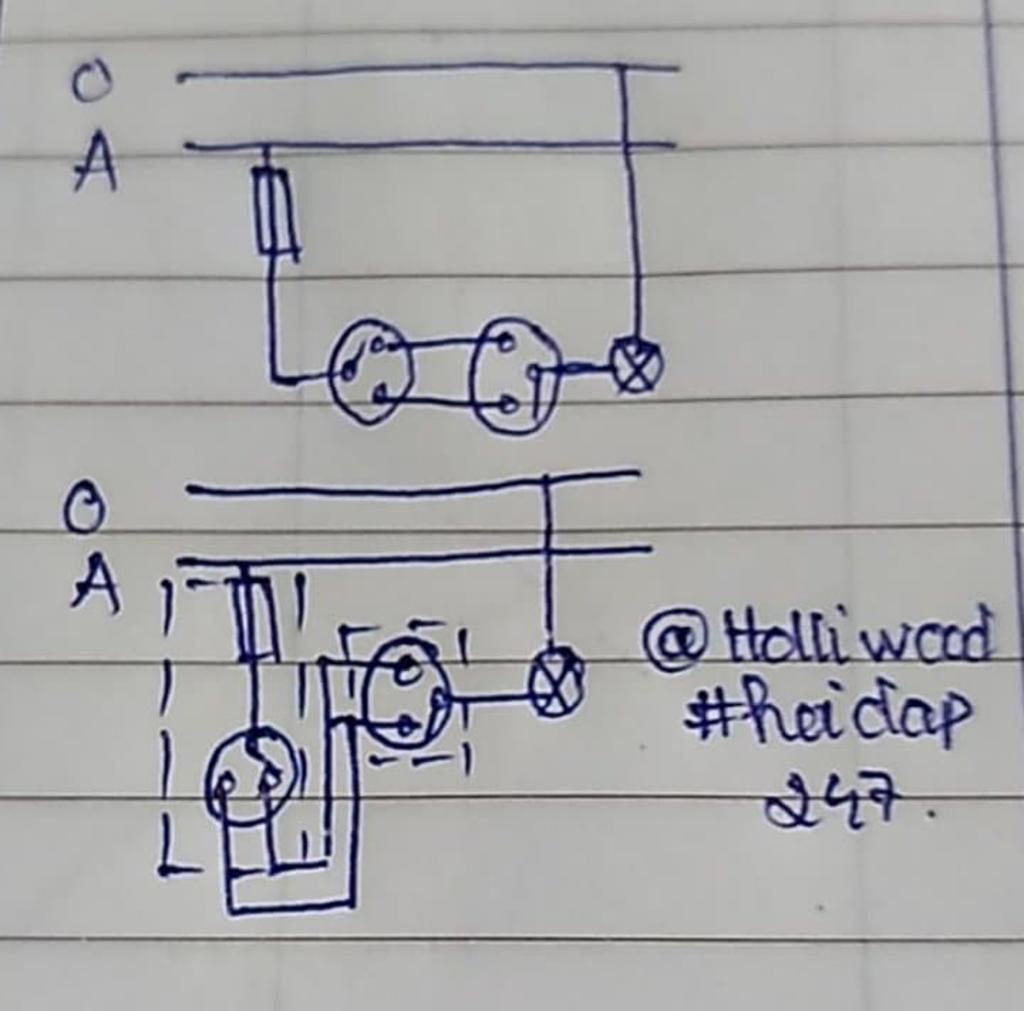 O
A
O
A
@Holliwood
#heidap
247.